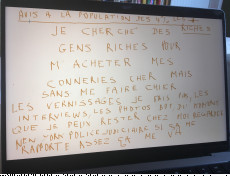 AVIS A LA POPULATION DES
JE CHERCHE DES RICHES
GENS RICHES POUR
M'ACHETER MES
CONNERIES CHER MAIS
SANS ME FAIRE CHIER
LES VERNISSAGES JE FAIS PAS, LES
INTERVIEWS, LES PHOTOS NON PLUS
QUE JE PEUX RESTER CHEZ MOI REGARDER
NEW YORK POLICE JUDICIAIRE SI ÇA ME
RAPPORTE ASSEZ ÇA ME VA